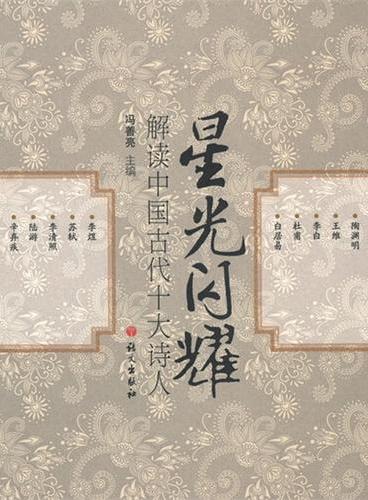 星光闪耀
解读中国古代十大诗人
冯善亮 主编
陶渊明
王维
李白
杜甫
白居易
李煜
苏轼
李清照
陆游
辛弃疾
语文出版社